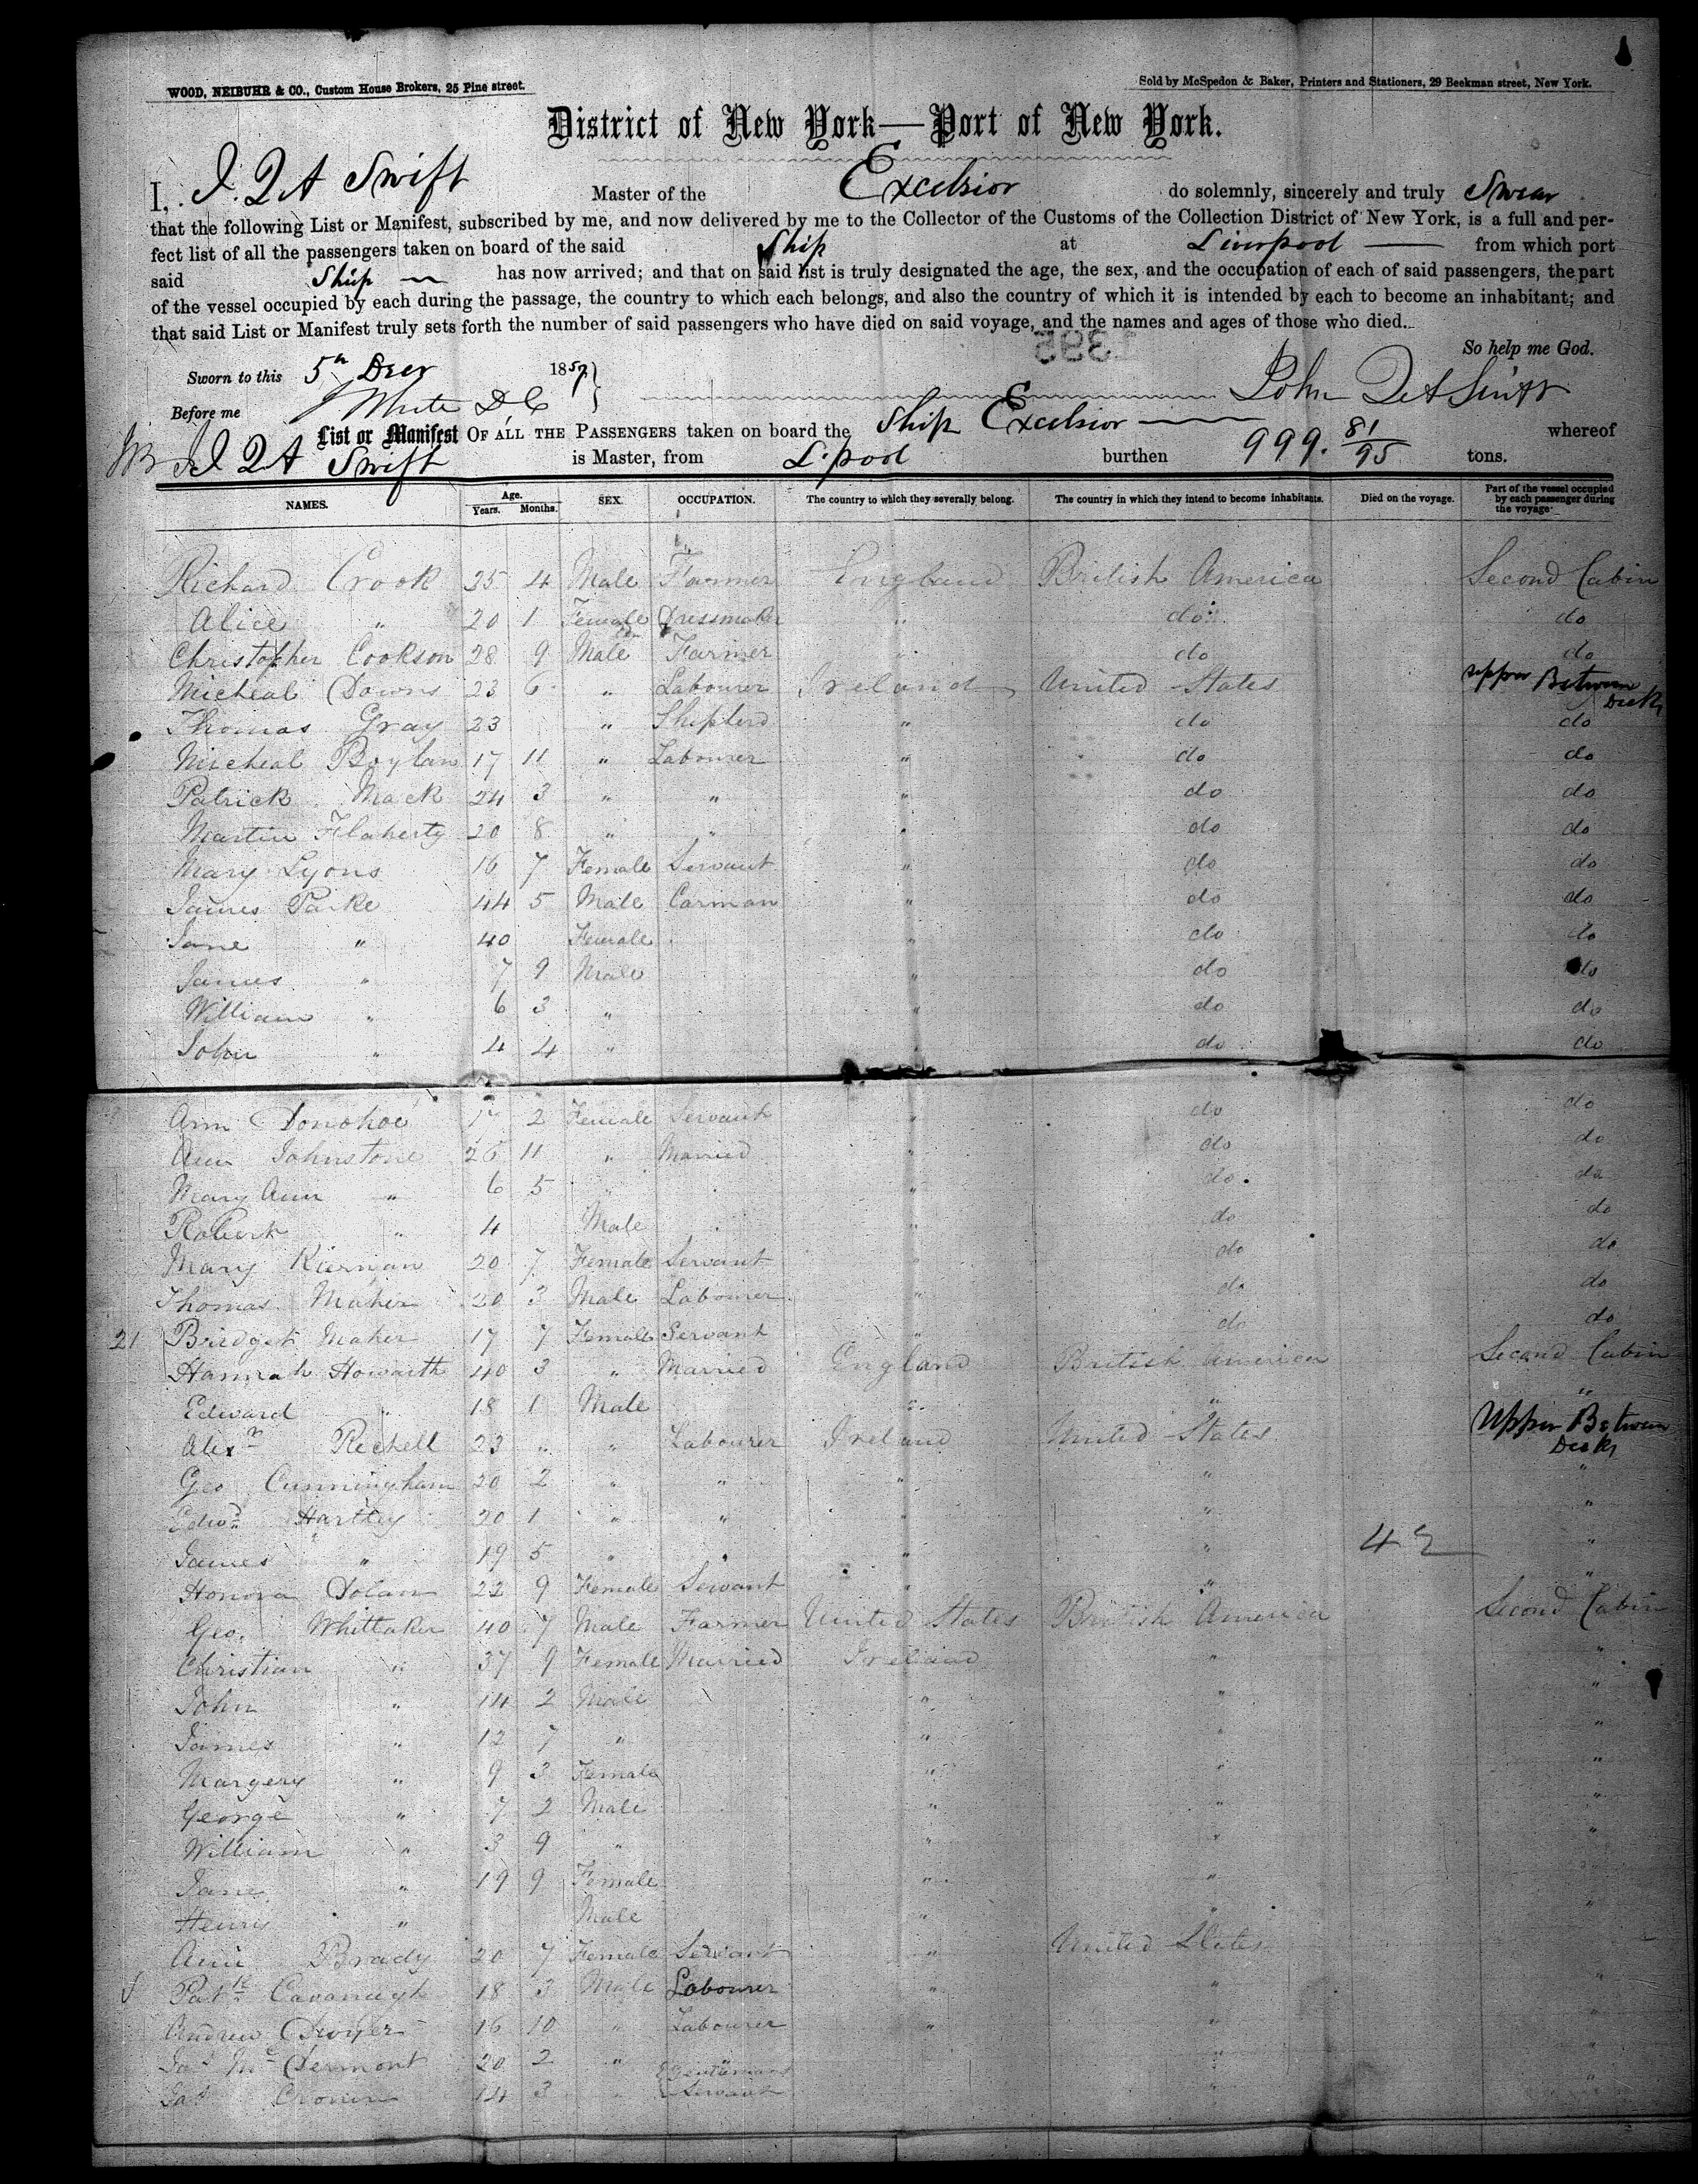 WOOD, NEIBUHR & CO., Custom House Brokers, 25 Pine street.
Sold by McSpedon & Baker, Printers and Stationers, 29 Beekman street, New York.
District of New York—Port of New York.
I, J. Q A Swift Master of the Excelsior do solemnly, sincerely and truly Swear
that the following List or Manifest, subscribed by me, and now delivered by me to the Collector of the Customs of the Collection District of New York, is a full and per-
fect list of all the passengers taken on board of the said Ship at Liverpool from which port
said Ship has now arrived; and that on said list is truly designated the age, the sex, and the occupation of each of said passengers, the part
of the vessel occupied by each during the passage, the country to which each belongs, and also the country of which it is intended by each to become an inhabitant; and
that said List or Manifest truly sets forth the number of said passengers who have died on said voyage, and the names and ages of those who died.
395
So help me God.
Sworn to this 5th Decr 1857 }
John Q A Swift
Before me White D C
List or Manifest OF ALL THE PASSENGERS taken on board the Ship Excelsior whereof
J Q A Swift is Master, from L.pool burthen 999. 81/95 tons.
NAMES. Age. Years. Months. SEX. OCCUPATION. The country to which they severally belong. The country in which they intend to become inhabitants. Died on the voyage. Part of the vessel occupied by each passenger during the voyage
Richard Crook 25 4 Male Farmer England British America Second Cabin
Alice " 20 1 Female Dressmaker " do do
Christopher Cookson 28 9 Male Farmer " do do
Micheal Downs 23 6 " Labourer Ireland United States Upper Between Decks
Thomas Gray 23 " Shepherd " do do
Micheal Boylan 17 11 " Labourer " do do
Patrick Mack 24 3 " " " do do
Martin Flaherty 20 8 " " " do do
Mary Lyons 16 7 Female Servant " do do
James Parke 44 5 Male Carman " do do
Jane " 40 Female " do do
James " 7 9 Male " do do
William " 6 3 " " do do
John " 4 4 " " do do
Ann Donohoe 17 2 Female Servant " do do
Ann Johnstone 26 11 " Married " do do
Mary Ann " 6 5 " " do do
Robert " 4 Male " do do
Mary Kiernan 20 7 Female Servant " do do
Thomas Maher 20 3 Male Labourer " do do
21 Bridget Maher 17 7 Female Servant " do do
Hannah Howarth 40 3 " Married England British America Second Cabin
Edward " 18 1 Male " " "
Alexr Rechell 23 " " Labourer Ireland United States Upper Between Decks
Geo Cunningham 20 2 " " " " "
Edwd Hartley 20 1 " " " " "
James " 19 5 " " " " 42 "
Honora Dolan 22 9 Female Servant " " "
Geo. Whittaker 40 7 Male Farmer United States British America Second Cabin
Christian " 37 9 Female Married Ireland " "
John " 14 2 Male " " "
James " 12 7 " " " "
Margery " 9 3 Female " " "
George " 7 2 Male " " "
William " 3 9 " " " "
Jane " 19 9 Female " "
Henry " Male " " "
Ann Brady 20 7 Female Servant " United States
Patk Cavanagh 18 3 Male Labourer " " "
Andrew Dwyer 16 10 " Labourer " "
Jas Mc Dermont 20 2 " " "
Jas Cronin 14 3 " Gentlemans Servant "